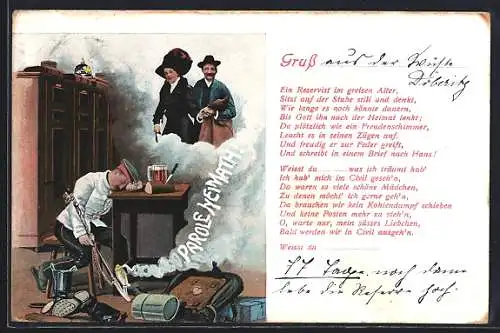 PAROLE HEIMATH
Gruß aus der Wüste
Döberitz
Ein Reservist im greisen Alter,
Sitzt auf der Stube still und denkt,
Wie lange es noch könnte dauern,
Bis Gott ihn nach der Heimat lenkt;
Da plötzlich wie ein Freudenschimmer,
Leucht es in seinen Zügen auf.
Und freudig er zur Feder greift,
Und schreibt in einem Brief nach Haus!
Weisst du was ich träumt hab'
Ich hab' mich im Civil geseh'n,
Da waren so viele schöne Mädchen,
Zu denen möcht' ich gerne geh'n,
Da brauchen wir kein Kohlendampf schieben
Und keine Posten mehr zu steh'n,
O, warte nur, mein süsses Liebchen,
Bald werden wir in Civil ausgeh'n.
Weisst du
77 Tage noch dann
lebe die Reserve hoch.